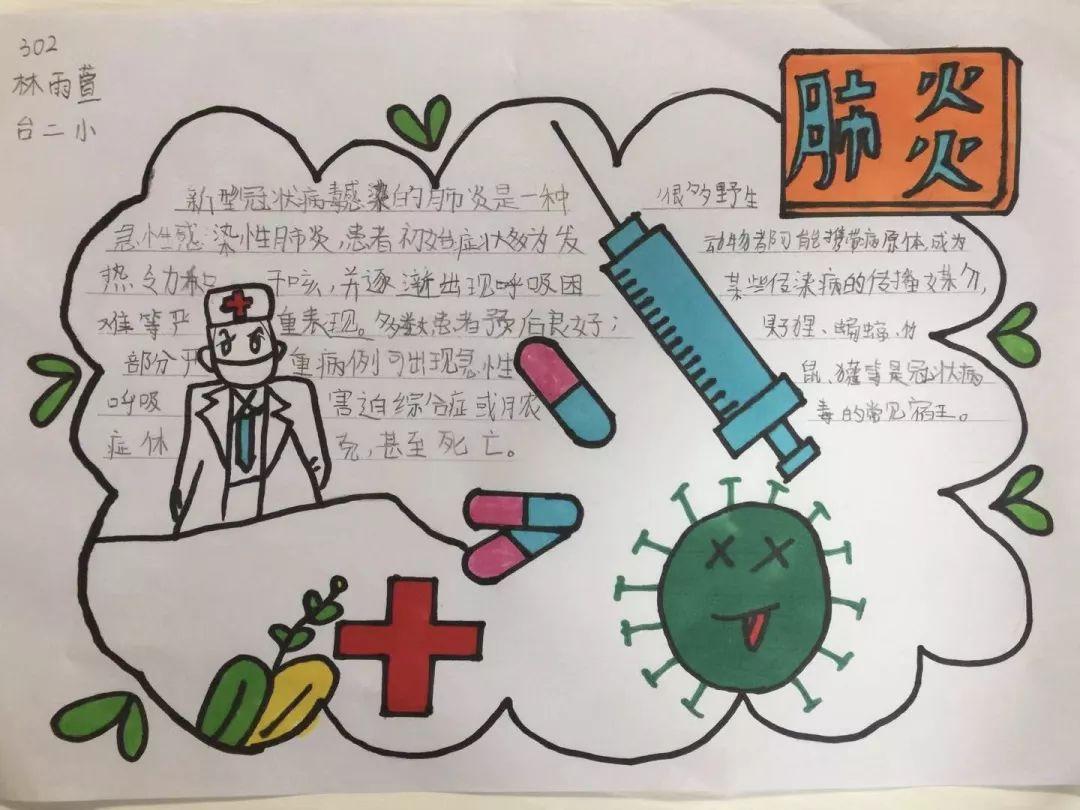 302
林雨萱
台二小
肺炎
新型冠状病毒感染的肺炎是一种
急性感染性肺炎,患者初始症状多为发
热乏力和 干咳,并逐渐出现呼吸困
难等严 重表现。多数患者预后良好;
部分严 重病例可出现急性
呼吸 害迫综合症或脓
症休 克,甚至死亡。
很多野生
动物都可能携带病原体,成为
某些传染病的传播媒介,
果子狸、蝙蝠、竹
鼠、獾等是冠状病
毒的常见宿主。